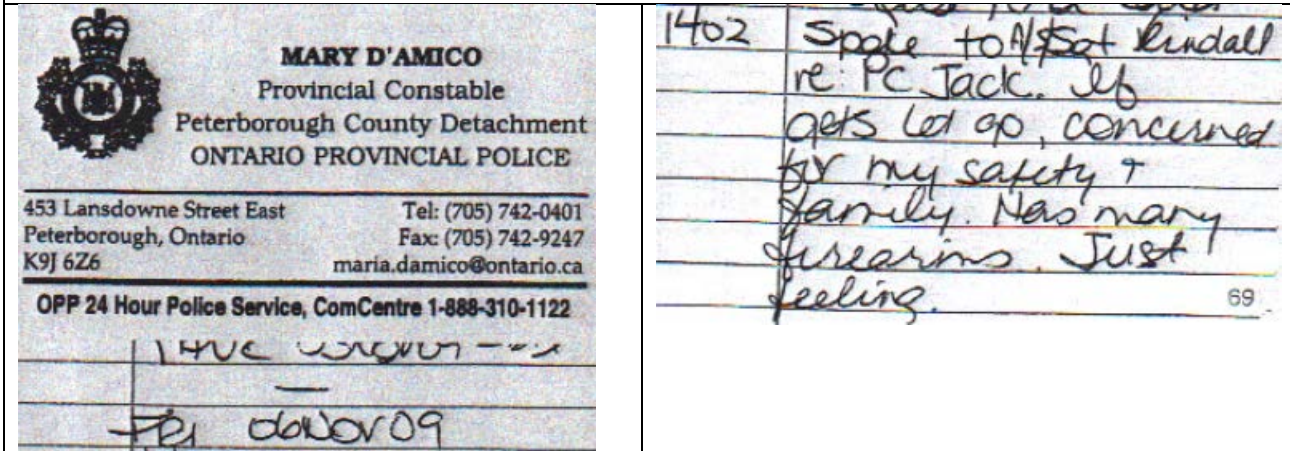 MARY D'AMICO
Provincial Constable
Peterborough County Detachment
ONTARIO PROVINCIAL POLICE
453 Lansdowne Street East
Peterborough, Ontario
K9J 6Z6
Tel: (705) 742-0401
Fax: (705) 742-9247
maria.damico@ontario.ca
OPP 24 Hour Police Service, ComCentre 1-888-310-1122
Fri 06Nov09
1402 Spoke to A/Sgt Rindall
re: PC Jack. If
gets let go, concerned
for my safety +
family. Has many
firearms. Just
feeling.
69